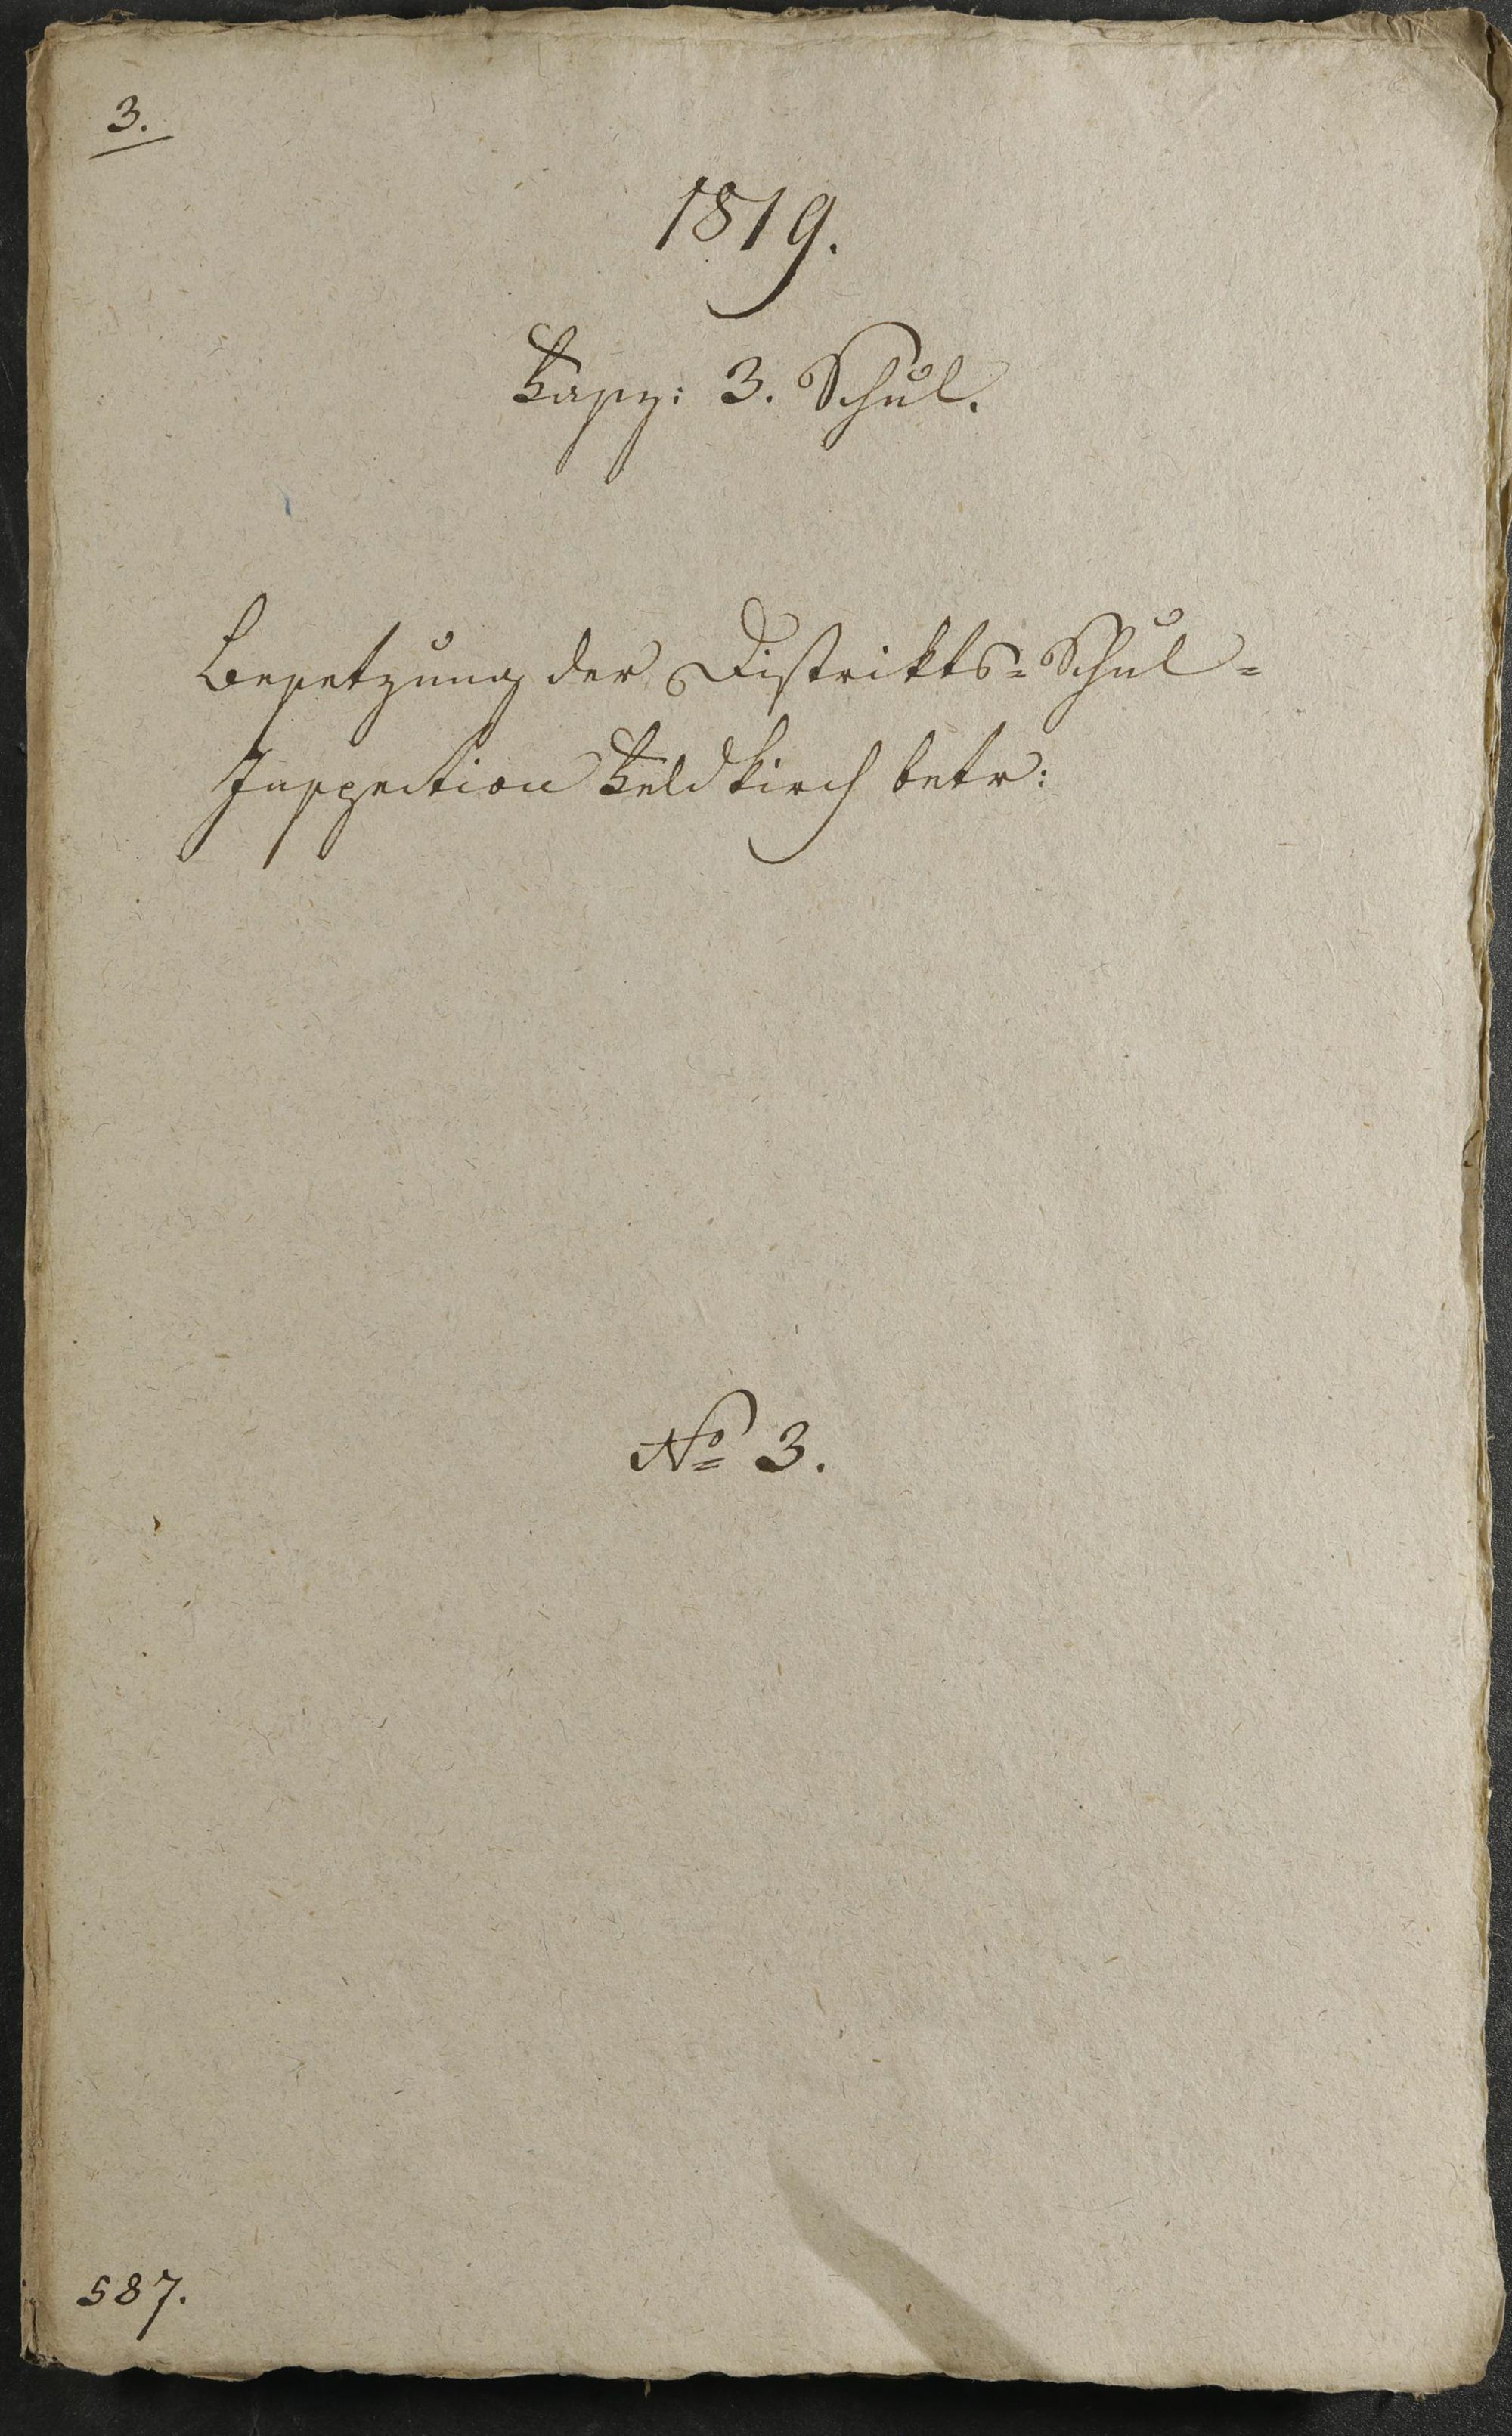 3.
1819.
Fasz: 3. Schul.
Besetzung der Distrikts=Schul=
Inspection Feldkirch betr:
No 3.
587.